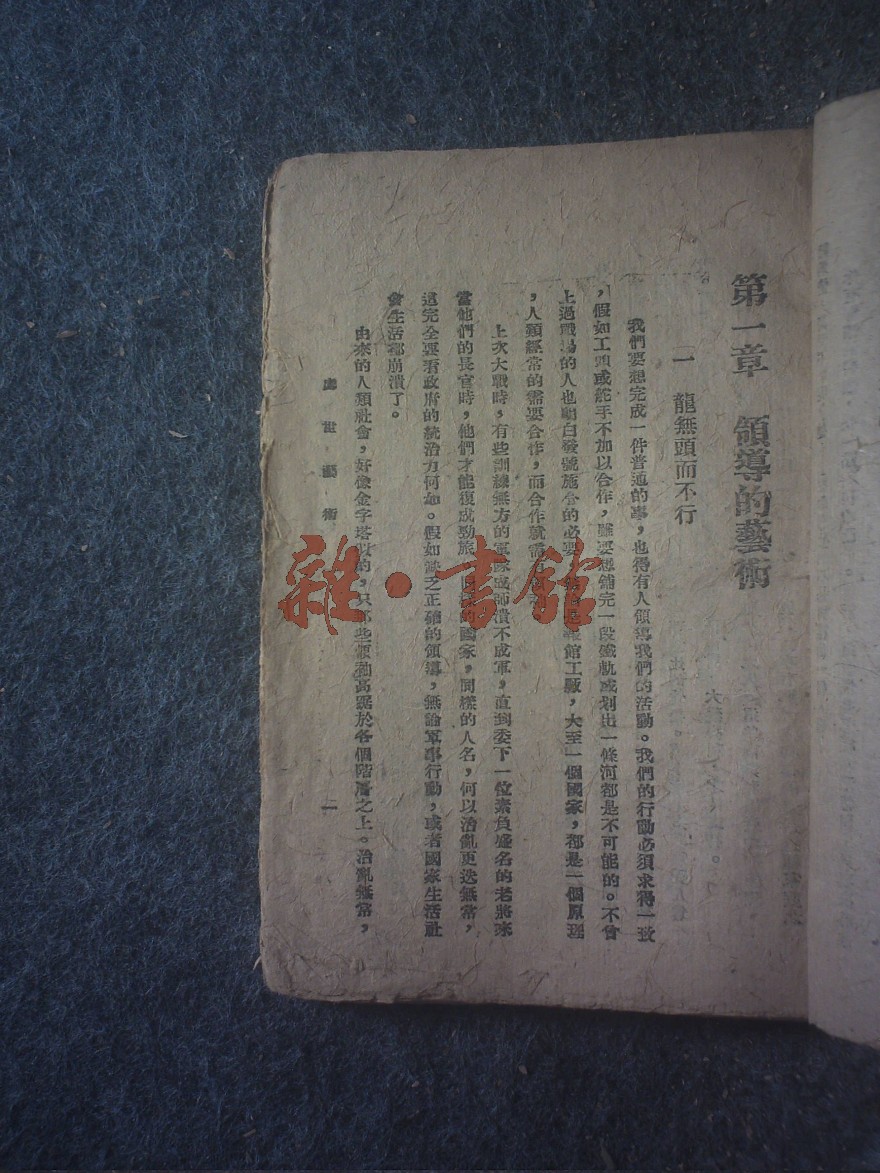 第一章 領導的藝術
一 龍無頭而不行
我們要想完成一件普通的事，也得有人領導我們的活動。我們的行動必須求得一致
，假如工頭或舵手不加以合作，雖要想鋪完一段鐵軌或划出一條河都是不可能的。不曾
上過戰場的人也明白發號施令的必要 館工廠，大至一個國家，都是一個原理
，人類經常的需要合作，而合作就需
上次大戰時，有些訓練無方的軍隊或師潰不成軍，直到委下一位素負盛名的老將來
當他們的長官時，他們才能復成勁旅 的國家，同樣的人名，何以治亂更迭無常，
這完全要看政府的統治力何如。假如缺乏正確的領導，無論軍事行動，或者國家生活社
會生活都崩潰了。
由來的人類社會，好像金字塔似的，只那些 高踞於各個階層之上。治亂無常，
處世藝術
一
雜·書館